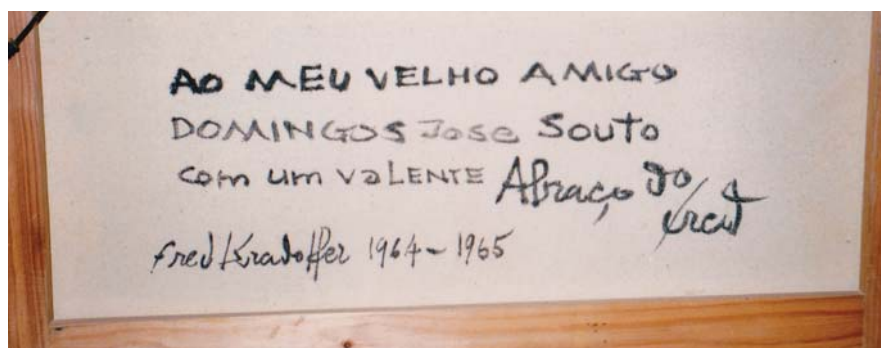 AO MEU VELHO AMIGO
DOMINGOS JOSE SOUTO
com um vaLENTE Abraço do
fred Kradolfer 1964-1965